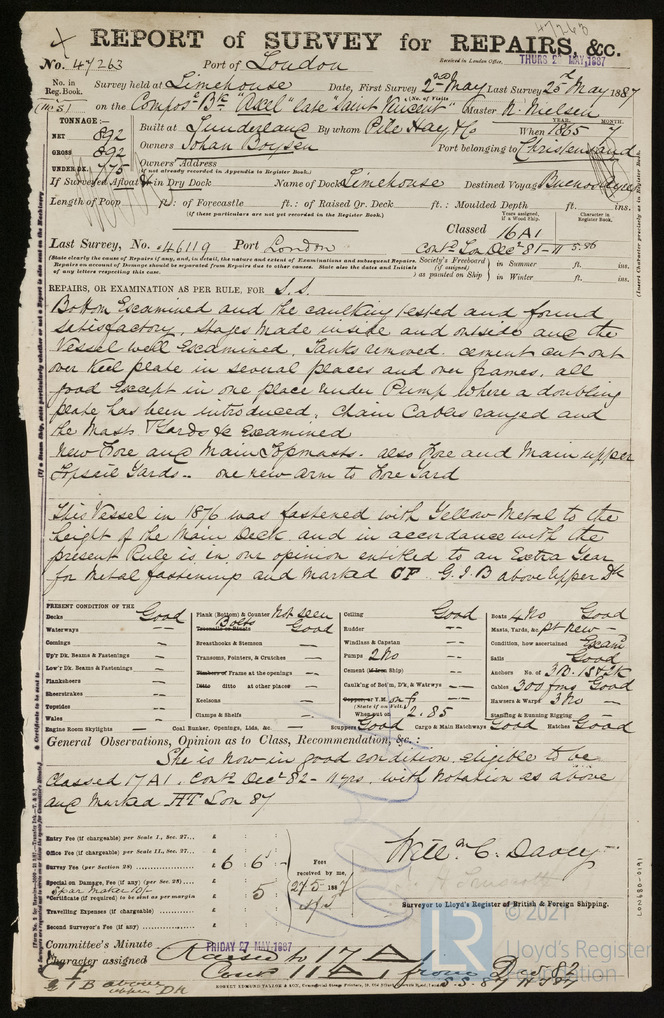 47263
REPORT of SURVEY for REPAIRS, &c.
No. 47263 Port of London
Received in London Office, THURS 26 MAY 1887
No. in Reg. Book. Survey held at Limehouse Date, First Survey 2nd May Last Survey 25th May 1887
(No. of Visits)
on the Compos. Bk "Axel" late "Saint Vincent" Master N. Nielsen
TONNAGE:—
NET 892
GROSS 892
UNDER DK. 775
Built at Sunderland By whom Pile Hay & Co When 1865 7
YEAR. MONTH.
Owners Johan Boysen Port belonging to Christensand
Owners' Address
(if not already recorded in Appendix to Register Book.)
If Surveyed Afloat or in Dry Dock Name of Dock Limehouse Destined Voyage Buenos Ayres
Length of Poop ft.: of Forecastle ft.: of Raised Qr. Deck ft.: Moulded Depth ft. ins.
(if these particulars are not yet recorded in the Register Book.)
Years assigned, if a Wood Ship. Character in Register Book.
Classed 16 A1
Last Survey, No. 46119 Port London Contd Lon Decr 81-11
Society's Freeboard (if assigned) as painted on Ship in Summer ft. ins.
in Winter ft. ins.
REPAIRS, OR EXAMINATION AS PER RULE, FOR S.S.
Bottom Examined and the caulking tested and found
satisfactory, Stages made inside and outside and the
Vessel well Examined, Tanks removed. cement cut out
over Keel plate in several places and over frames, all
good Except in one place under Pump where a doubling
plate has been introduced, Chain Cables ranged and
the Masts Yards &c Examined
New Fore and Main Topmasts. also Fore and Main upper
Topsail Yards.. one new arm to Fore Yard
This Vessel in 1876 was fastened with Yellow Metal to the
height of the Main Deck and in accordance with the
present Rule is in our opinion entitled to an Extra Year
for Metal fastening and marked CF. G.I.B above Upper Dk
PRESENT CONDITION OF THE
Decks Good
Waterways
Comings
Up'r Dk. Beams & Fastenings
Low'r Dk. Beams & Fastenings
Planksheers
Sheerstrakes
Topsides
Wales
Engine Room Skylights
Plank (Bottom) & Counter Not seen
Treenails or Rivets Bolts Good
Breasthooks & Stemson
Transoms, Pointers, & Crutches
Timbers or Frame at the openings
Ditto ditto at other places
Keelsons
Clamps & Shelfs
Coal Bunker, Openings, Lids, &c.
Ceiling Good
Rudder
Windlass & Capstan
Pumps 2 No
Cement (if Iron Ship)
Caulk'ng of Bot'm, D'k, & Watrwys
Copper, or Y.M.
(State if on Felt.)
When put on 2.85
Scuppers Good
Cargo & Main Hatchways Good
Boats 4 No Good
Masts, Yards, &c. pt new
Condition, how ascertained Exam
Sails Good
Anchors No. of 3 B. 1 S & 2 K
Cables 300 fms Good
Hawsers & Warps 3 No
Standing & Running Rigging
Hatches Good
General Observations, Opinion as to Class, Recommendation, &c.:
She is now in good condition eligible to be
Classed 17 A1. Contd Decr 82-11 yrs. with notation as above
and marked HT Lon 87
Entry Fee (if chargeable) per Scale I., Sec. 27...
Office Fee (if chargeable) per Scale II., Sec. 27...
Survey Fee (per Section 28) £ 6 : 6 : -
Special on Damage, Fee (if any) (per Sec. 28)
*Certificate (if required) to be sent as per margin : 5
Travelling Expenses (if chargeable)
Second Surveyor's Fee (if any)
Fees received by me, 27/5 1887
Will. m C. Davey
Surveyor to Lloyd's Register of British & Foreign Shipping.
Committee's Minute FRIDAY 27 MAY 1887
Character assigned Raised to 17 A
Contd 11 A1 from Dec 82
S.S. 87 HT 87
C F
G I B above upper Dk
ROBERT EDMUND TAYLOR & SON
LON680-0191
© 2021
Lloyd's Register
Foundation